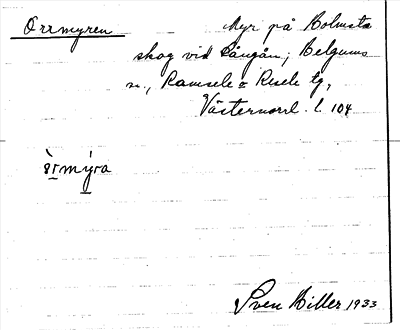 Orrmyren
Myr på Bolmsta
skog vid Sångån; Helgums
sn., Ramsele o Resele tg,
Västernorrl. l. 104
Sven Hiller 1933